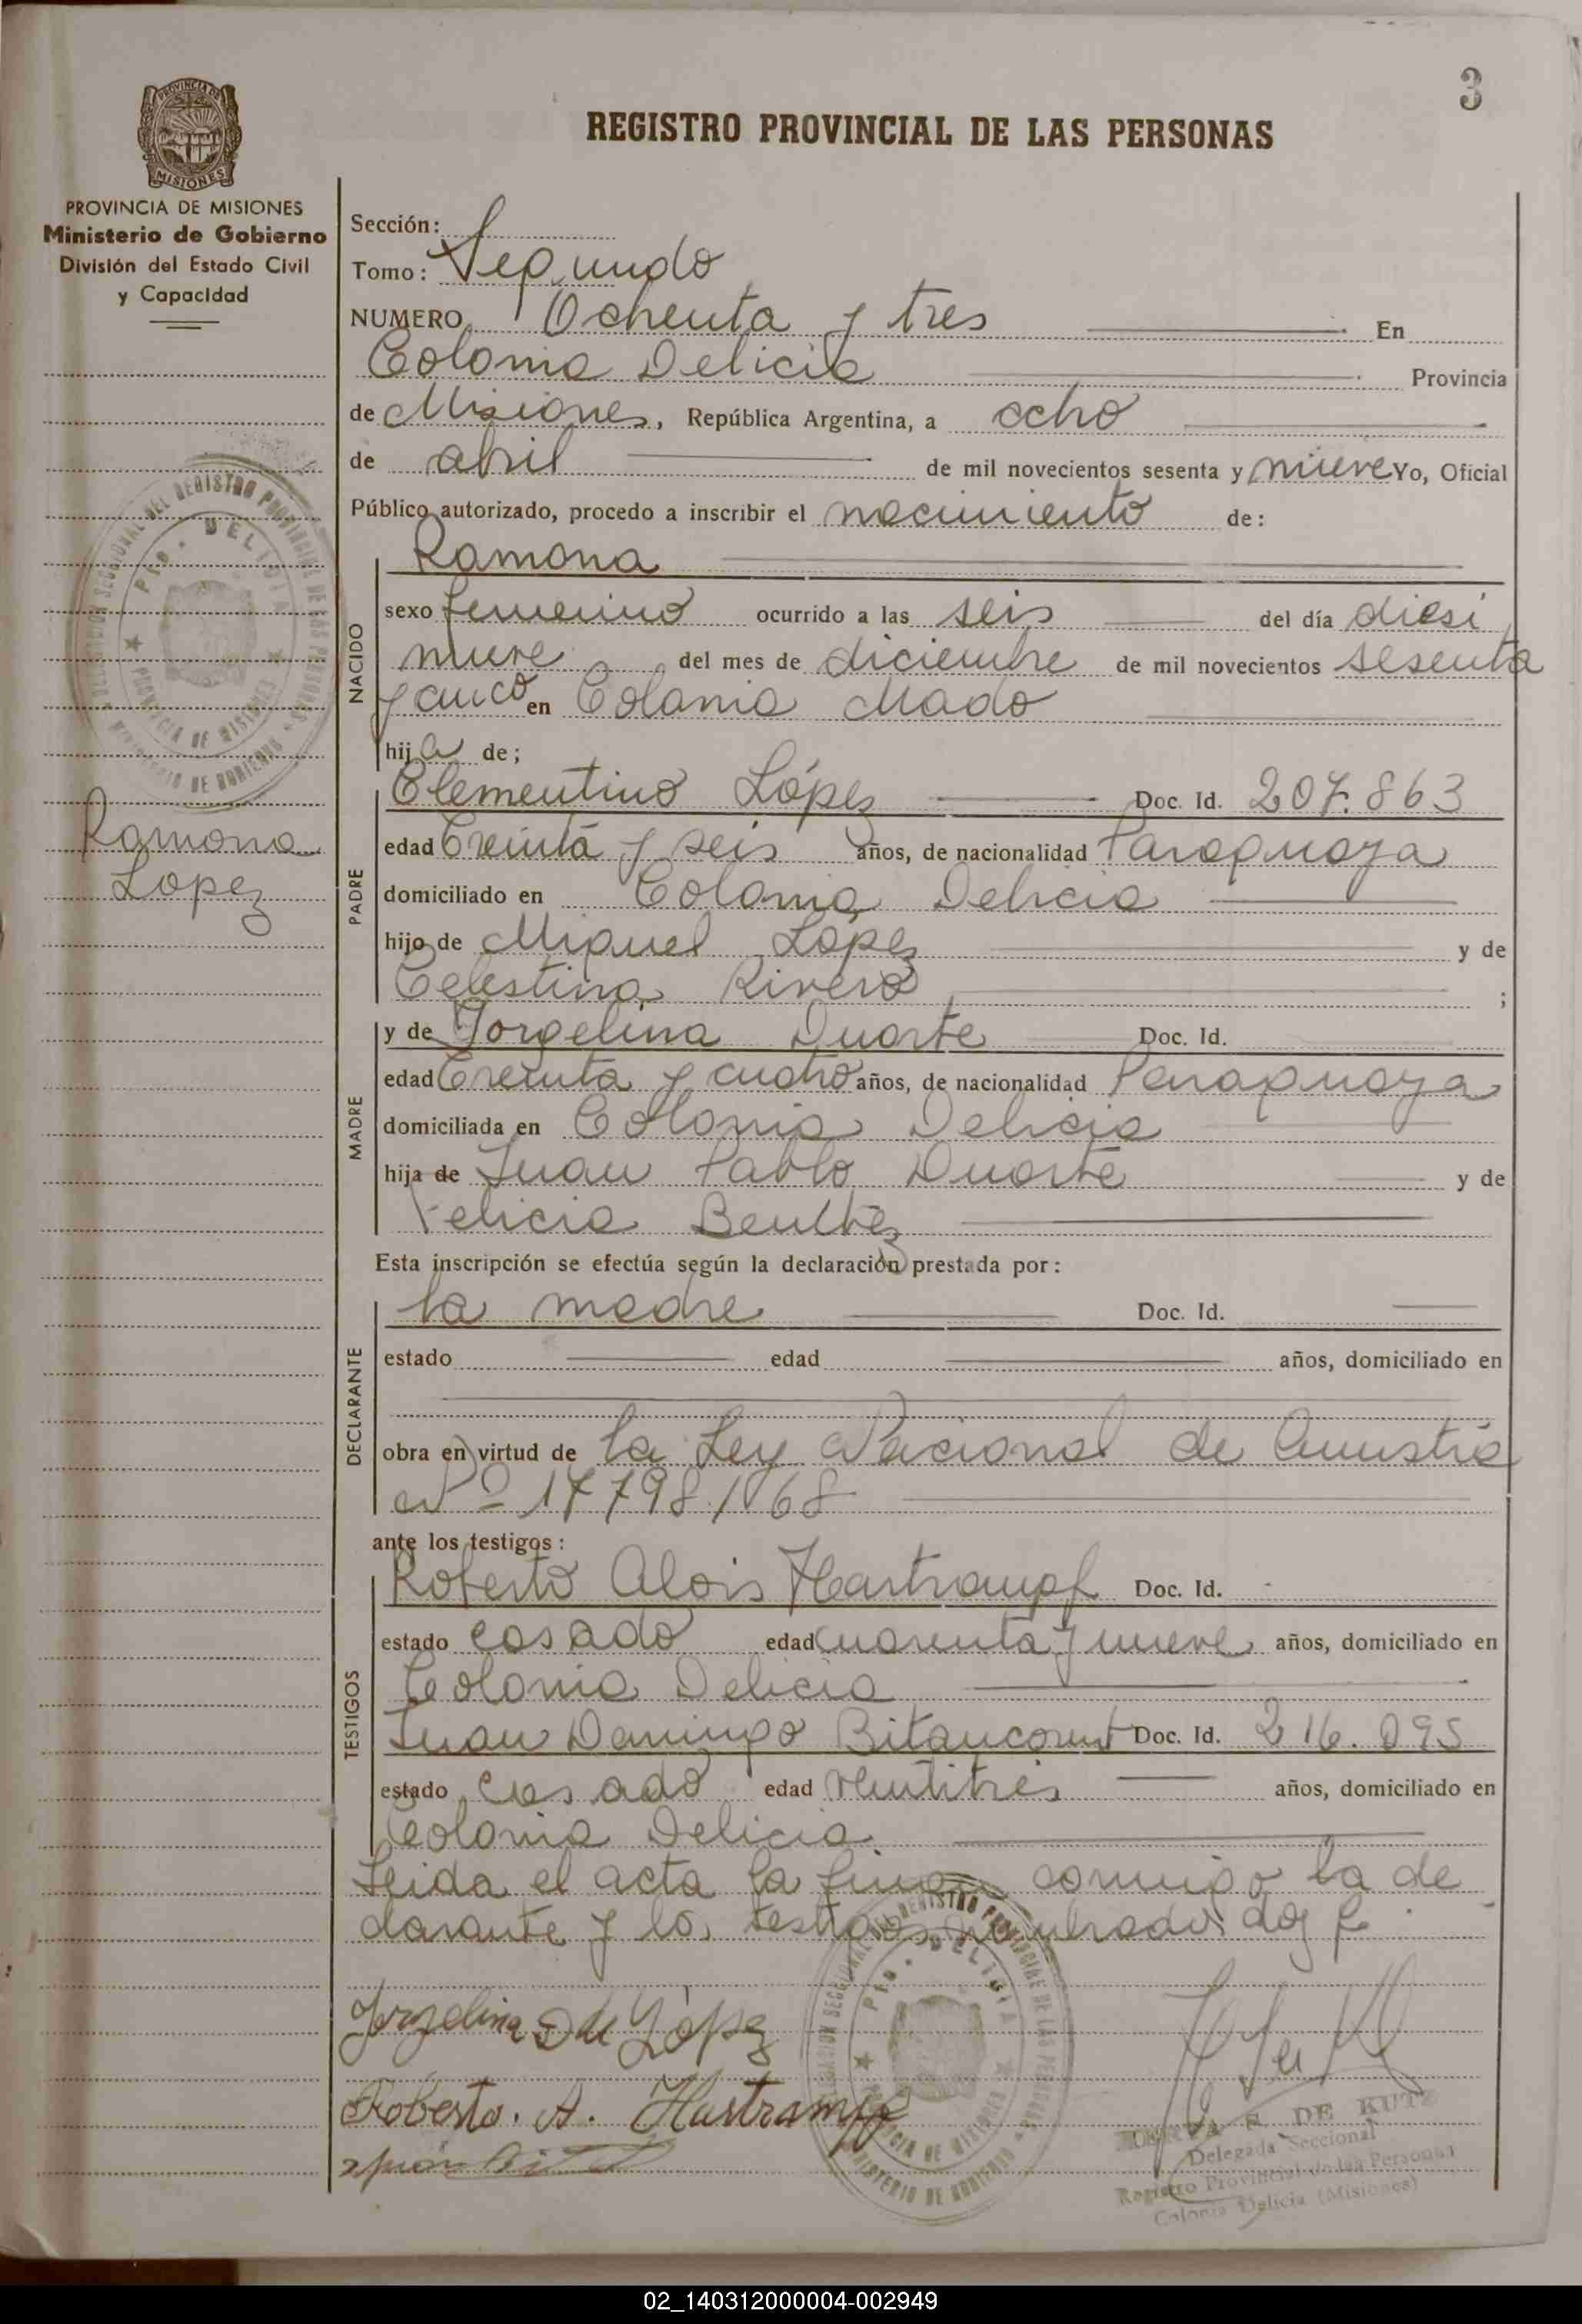 3
REGISTRO PROVINCIAL DE LAS PERSONAS
PROVINCIA DE
MISIONES
PROVINCIA DE MISIONES
Ministerio de Gobierno
División del Estado Civil
y Capacidad
Sección:
Tomo: Segundo
NUMERO Ochenta y tres En
Colonia Delicia Provincia
de Misiones, República Argentina, a ocho
de abril de mil novecientos sesenta y nueve Yo, Oficial
Público autorizado, procedo a inscribir el nacimiento de:
NACIDO
Ramona
sexo femenino ocurrido a las seis del día diesi
nueve del mes de diciembre de mil novecientos sesenta
y cinco en Colonia Mado
hija de;
Ramona
Lopez
PADRE
Clementino López Doc. Id. 207.863
edad treinta y seis años, de nacionalidad Paraguaya
domiciliado en Colonia Delicia
hijo de Miguel López y de
Celestina Rivero ;
MADRE
y de Jorgelina Duarte Doc. Id.
edad treinta y cuatro años, de nacionalidad Paraguaya
domiciliada en Colonia Delicia
hija de Juan Pablo Duarte y de
Felicia Benítez
Esta inscripción se efectúa según la declaración prestada por:
DECLARANTE
la madre Doc. Id.
estado edad años, domiciliado en
obra en virtud de la Ley Nacional de Amnistia
Nº 17798/968
ante los testigos:
TESTIGOS
Roberto Alois Hartrampf Doc. Id.
estado casado edad cuarenta y nueve años, domiciliado en
Colonia Delicia
Juan Domingo Bitancourt Doc. Id. 216.095
estado casado edad veintitres años, domiciliado en
Colonia Delicia
Leida el acta la firman conmigo la de
clarante y los testigos nombrados doy fe.
Jorgelina D de López
Roberto. A. Hartrampf
DE KUTZ
Delegada Seccional
Registro Provincial de las Personas
Colonia Delicia (Misiones)
02_140312000004-002949